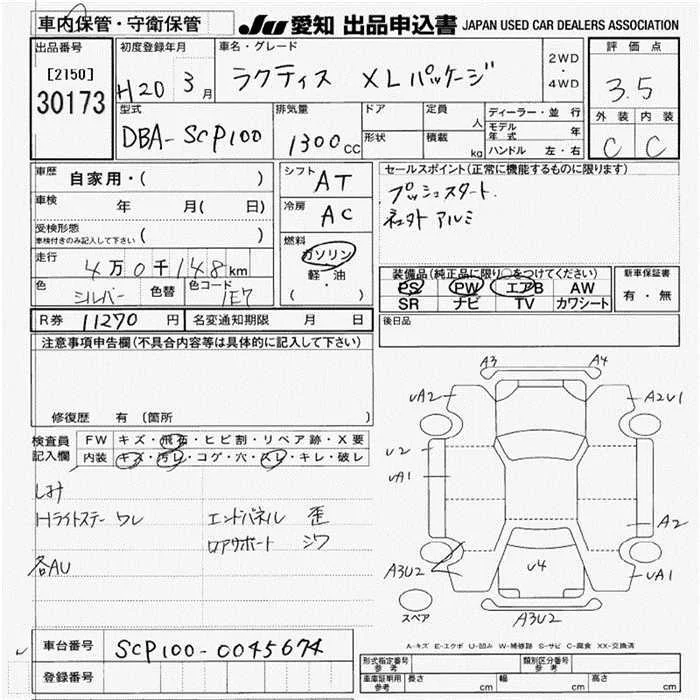 車内保管・守衛保管 JU 愛知 出品申込書 JAPAN USED CAR DEALERS ASSOCIATION
出品番号 初度登録年月 車名・グレード 評価点
[2150] 30173 H20 3月 ラクティス XLパッケージ 2WD・4WD 3.5
型式 排気量 ドア 定員 人 ディーラー・並行 外装 内装
DBA-SCP100 1300cc 形状 積載 kg モデル年式 年 C C
ハンドル 左・右
車歴 自家用・( ) シフト AT セールスポイント(正常に機能するものに限ります)
車検 年 月( 日) 冷房 AC プッシュスタート.
受検形態 車検付きのみ記入して下さい ( ) アルミ
走行 4万0千148km 燃料 ガソリン 軽・油 ( )
色 シルバー 色替 色コード 1E7
装備品(純正品に限り○をつけてください) 新車保証書
PS PW エアB AW 有・無
SR ナビ TV カワシート
R券 11270円 名変通知期限 月 日 後日品
注意事項申告欄(不具合内容等は具体的に記入して下さい)
修復歴 有 (箇所
検査員記入欄 FW キズ・飛石・ヒビ割・リペア跡・X要
内装 キズ・汚レ・コゲ・穴・スレ・キレ・破レ
シミ
Hライトステー ワレ エンドパネル 歪
ロアサポート シワ
各AU
A3 A4
UA2 A2U1
U2
UA1
A2
A3U2 U4 UA1
スペア A3U2
A-キズ E-エクボ U-凹み W-補修跡 S-サビ C-腐食 XX-交換済
車台番号 SCP100-0045674
登録番号
形式指定番号 参考 類別区分番号 参考
車庫証明用 参考 長さ cm 幅 cm 高さ cm